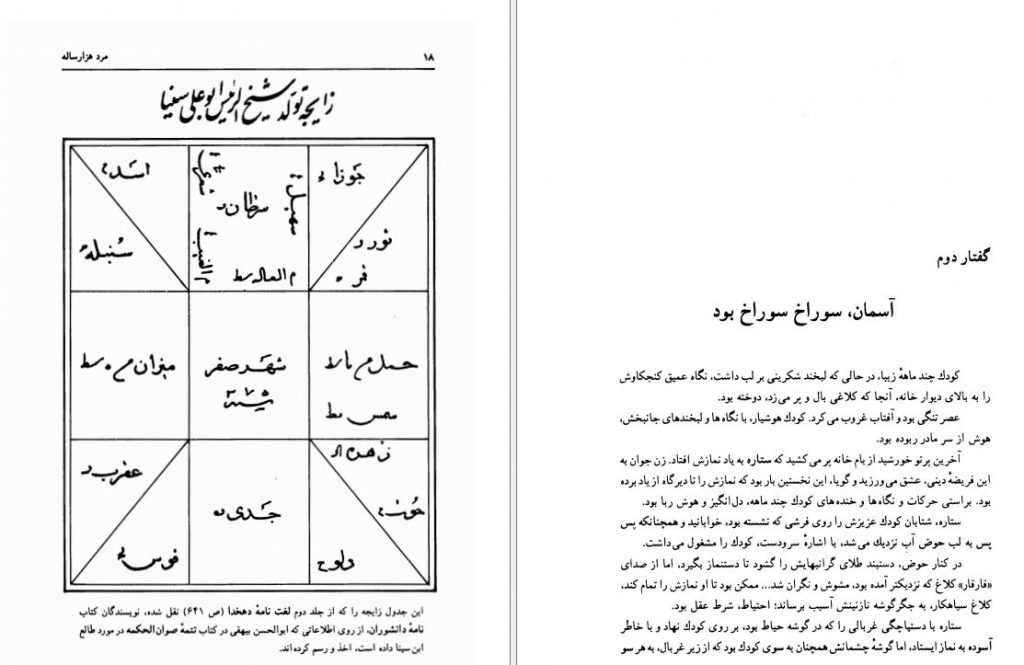 ۱۸
مرد هزارساله
زایجه تولد شیخ الرئیس ابوعلی سینا
جوزاء
ثور د
سرطان
سهیل
اسد
سنبله
حمل م
شهر صفر
سنه
میزان م
زهره
حوت
دلو
جدی
عقرب د
قوس
این جدول زایجه را که از جلد دوم لغت نامهٔ دهخدا (ص ۶۴۱) نقل شده، نویسندگان کتاب
نامهٔ دانشوران، از روی اطلاعاتی که ابوالحسن بیهقی در کتاب تتمهٔ صوان‌الحکمه در مورد طالع
ابن سینا داده است، اخذ و رسم کرده‌اند.
گفتار دوم
آسمان، سوراخ سوراخ بود
کودك چند ماههٔ زیبا، در حالی که لبخند شکرینی بر لب داشت، نگاه عمیق کنجکاوش
را به بالای دیوار خانه، آنجا که کلاغی بال و پر می‌زد، دوخته بود.
عصر تنگی بود و آفتاب غروب می‌کرد. کودك هوشیار، با نگاه‌ها و لبخندهای جانبخش،
هوش از سر مادر ربوده بود.
آخرین پرتو خورشید از بام خانه پر می‌کشید که ستاره به یاد نمازش افتاد. زن جوان به
این فریضهٔ دینی، عشق می‌ورزید و گویا، این نخستین بار بود که نمازش را تا دیرگاه از یاد برده
بود. براستی حرکات و نگاه‌ها و خنده‌های کودك چند ماهه، دل‌انگیز و هوش ربا بود.
ستاره، شتابان کودك عزیزش را روی فرشی که نشسته بود، خوابانید و همچنانکه پس
پس به لب حوض آب نزدیك می‌شد، با اشارهٔ سرودست، کودك را مشغول می‌داشت.
در کنار حوض، دستبند طلای گرانبهایش را گشود تا دستنماز بگیرد، اما از صدای
«قارقار» کلاغ که نزدیکتر آمده بود، مشوش و نگران شد... ممکن بود تا او نمازش را تمام کند،
کلاغ سیاهکار، به جگرگوشه نازنینش آسیب برساند؛ احتیاط، شرط عقل بود.
ستاره با دستپاچگی غربالی را که در گوشه حیاط بود، بر روی کودك نهاد و با خاطر
آسوده به نماز ایستاد، اما گوشهٔ چشمانش همچنان به سوی کودك بود که از زیر غربال، به هر سو